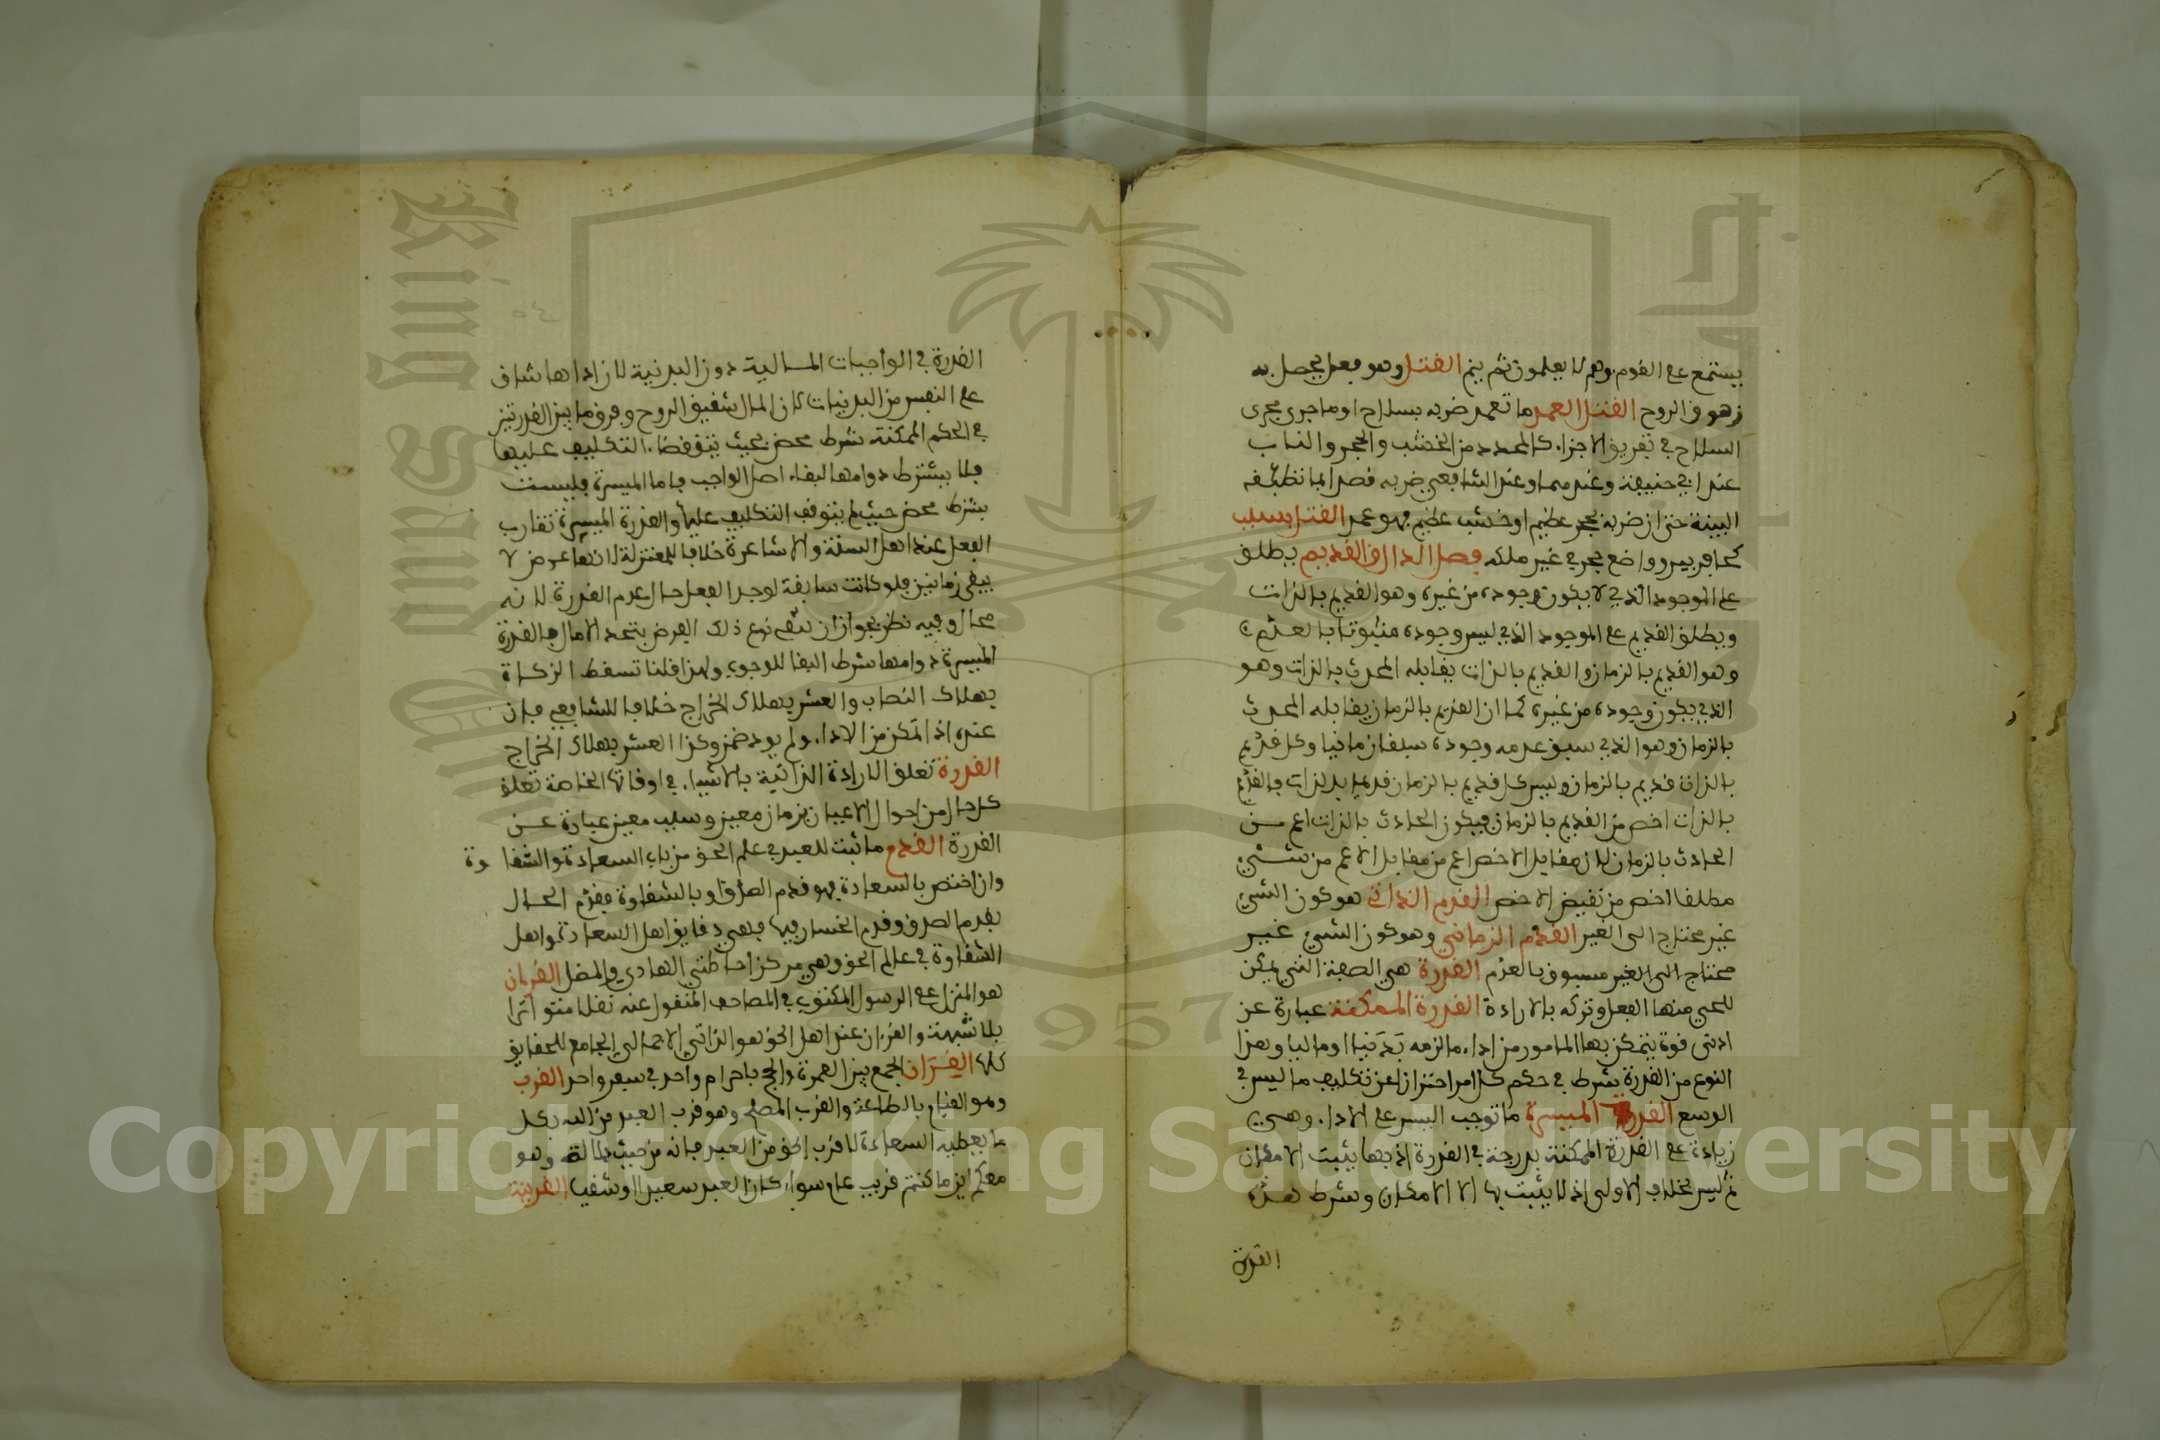 يستمع على القوم وهم لا يعلمون ثم ينم القتل وهو فعل يحصل به
زهوق الروح القتل العمد ما تعمد ضربه بسلاح او ما جرى مجرى
السلاح في تفريق الاجزاء كالمحدد من الخشب والحجر والنار
عند ابي حنيفة وعندهما وعند الشافعي ضربه قصدا بما لا تطيقه
البينة حتى ان ضربه بحجر عظيم او خشب عظيم فهو عمد القتل بسبب
كحافر بير وواضع حجر في غير ملكه فصل الدال القديم يطلق
على الموجود الذي لا يكون وجوده من غيره وهو القديم بالذات
ويطلق القديم على الموجود الذي ليس وجوده مسبوقا بالعدم
وهو القديم بالزمان والقديم بالذات يقابله المحدث بالذات وهو
الذي يكون وجوده من غيره كما ان القديم بالزمان يقابله المحدث
بالزمان وهو الذي سبق عدمه وجوده سبقا زمانيا وكل قديم
بالذات قديم بالزمان وليس كل قديم بالزمان قديما بالذات فالقديم
بالذات اخص من القديم بالزمان فيكون الحادث بالذات اعم من
الحادث بالزمان لان مقابل الاخص اعم من مقابل الاعم من شيئ
مطلقا اخص من نقيض الاخص القدم الذاتي هو كون الشيئ
غير محتاج الى الغير القدم الزماني وهو كون الشيئ غير
محتاج الى الغير مسبوق بالعدم القدرة هي الصفة التي يمكن
للحي منها الفعل وتركه بالارادة القدرة الممكنة عبارة عن
ادنى قوة يتمكن بها المامور من اداء ما لزمه بَدَنيا او ماليا وهذا
النوع من القدرة بشرط في حكم كل امر احترازا عن تكليف ما ليس في
الوسع القدرة الميسرة ما توجب اليسر على الاداء وهي
زيادة على القدرة الممكنة بدرجة في القدرة اذ بها يثبت الامكان
ثم ليس بخلاف الاولى اذ لا يثبت بها الا الامكان وشرط هذه
القدرة
القدرة في الواجبات المالية دون البدنية لان اداها شاق
على النفس من البدنيات لان المال شقيق الروح وفرق ما بين القدرتين
في الحكم الممكنة شرط محض بحيث يتوقف التكليف عليها
فلا يشترط دوامها لبقاء اصل الواجب فاما الميسرة فليست
بشرط محض حيث لم يتوقف التكليف عليها والقدرة الميسرة تقارب
الفعل عند اهل السنة والاشاعرة خلافا للمعتزلة لانها عرض لا
يبقى زمانين فلو كانت سابقة لوجد الفعل حال عدم القدرة لانه
محال وفيه نظر لجواز ان يبقى نوع ذلك العرض بتجدد الامثال فالقدرة
الميسرة دوامها شرط البقا للوجوب ولهذا قلنا تسقط الزكاة
بهلاك النصاب والعشر بهلاك الخراج خلافا للشافعي فان
عنده اذا تمكن من الاداء ولم يود ضمن وكذا العشر بهلاك الخراج
القدرة تعلق الارادة الذاتية بالاشياء في اوقاتها الخاصة تعلق
كل حال من احوال الاعيان بزمان معين وسبب معين عبارة عن
القدرة القدم ما ثبت للعبد في علم الحق من باب السعادة والشقاوة
وان اختص بالسعادة فهو قدم الصدق او بالشقاوة فقدم الحال
بقدم الصدق وقدم الخسار فيها فهي دقايق اهل السعادة واهل
الشقاوة في عالم الحق وهي مركز احاطتي الهادي والمضل القرءان
هو المنزل على الرسول المكتوب في المصاحف المنقول عنه نقلا متواترا
بلا شبهة والقرءان عند اهل الحق هو الذاتي الاجمالي الجامع للحقايق
كلها القِرَان الجمع بين العمرة والحج باحرام واحد في سفر واحد القرب
وهو القيام بالطاعة والقرب المصطلح وهو قرب العبد من الله بكل
ما يعطيه السعادة لا قرب الحق من العبد فانه من حيث دلالة وهو
معكم اين ما كنتم قريب عام سواء كان العبد سعيدا او شقيا القرينة